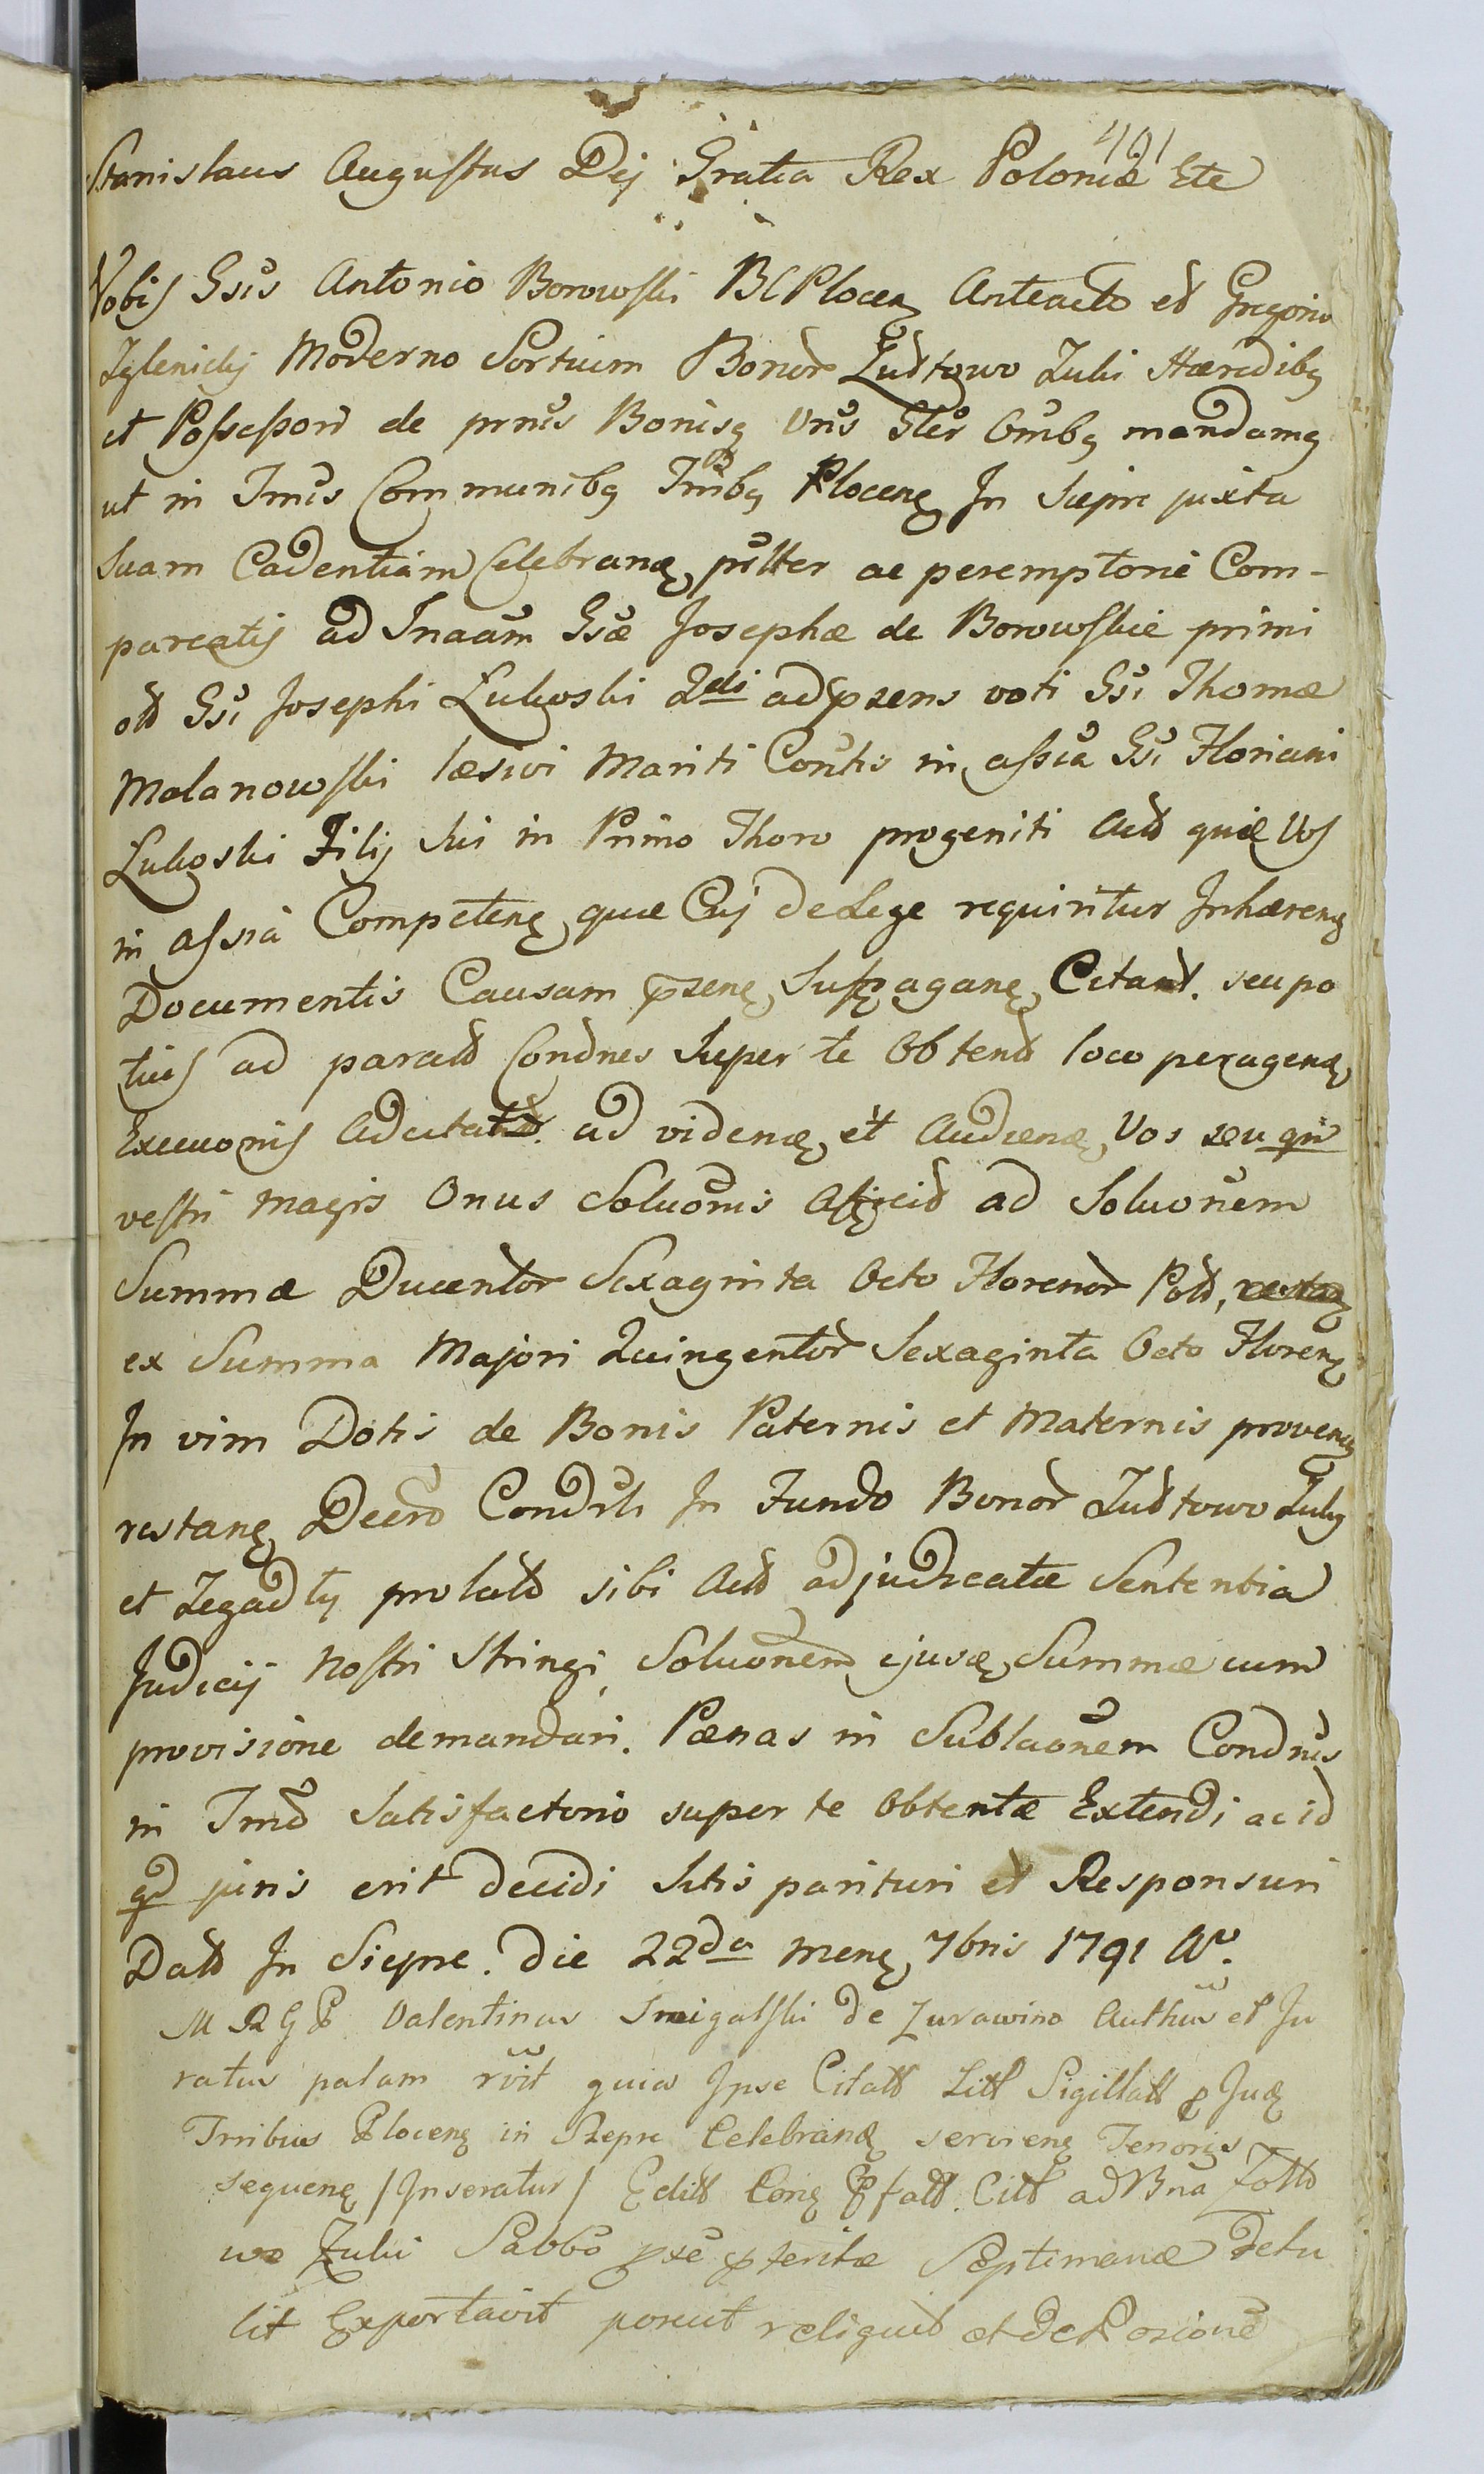 401
Stanislaus Augustus Dej Gratia Rex Poloniæ Etc
Vobis Gsis Antonio Borowski BC Plocen Anteacto et Gregorio
Zglenicky Moderno Sortium Bonor Ludtowo Zulii Hæredibq
et Possessori de prnis Bonisq Vris Gler Omibq mandamq
ut in Tmis Communibq Tmibq Plocenq In Siepre juxta
Suam Cadentiam Celebranq prltter ac peremptorie Com-
pareatis ad Inaam Gsæ Josephæ de Borowskie primi
old Gsi Josephi Lukoski 2di ad præsens voti Gsi Thomæ
Malanowski læsivi Mariti Conths in assia Gsi Floriani
Lukoski Filij sui in Primo Thoro progeniti Actd quæ Vos
in assia Competenq quæ Eij de Lege requiritur Inhærenq
Documentis Causam præsenq Citand. seu po
tius ad paratd Condnes super te Obtentd loco peragenq
Execuonis Adcitatd. ad videnq et Audienq Vos seu qui
vestri magis Onus Soluonis Afficid ad Soluonem
Summæ Ducentor Sexaginta Octo Florenor Pold,
ex Summa Majori Quingentor Sexaginta Octo Florenq
In vim Dotis de Bonis Paternis et Maternis provenq
restanq Decro Condrli In Fundo Bonor Ludtowo Zuly
et Zegadly prolatd sibi Actd adjudicatæ Sententia
Judicij Nostri Stringi, Soluonem ejusq Summæ cum
provisione demandari. Pænas in Sublaonem Condnis
in Tmo Satisfactorio super te Obtentæ Extendi ac id
qd juris erit decidi Sitis parituri et Responsuri
Datt In Siepre. Die 22da Menq 7bris 1791 Ao.
M R G P Valentinus Smigalski de Zurawino Authus et Ju
ratus palam rvit quia Ipse Citatt Litt Sigillatt p Judq
Tmibus Plocenq in Szepre Celebranq servienq Tenoris
sequenq /Inseratur/ Editt Conq Pfatt. Citt ad Bna
wo Zulii Sabbo pse pteritæ Septimanæ Detu
lit Exportavit posuit reliquit et de Posicione